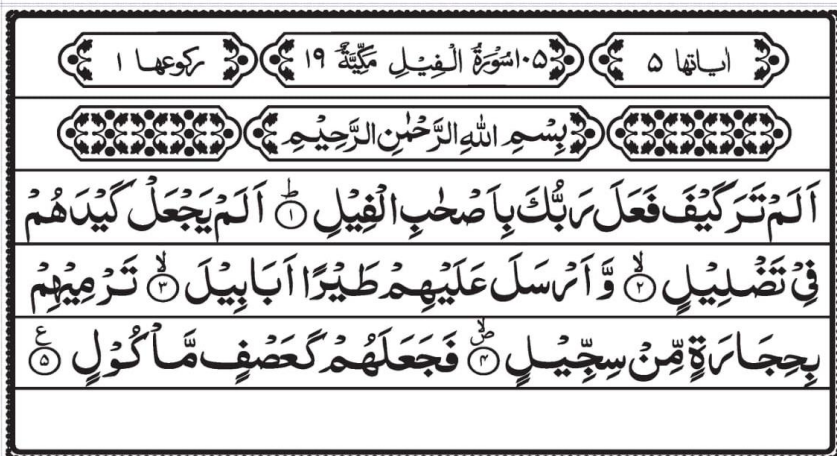 اٰیاتها ۵ ۱۰۵ سُوْرَةُ الْفِيْلِ مَكِّيَّةٌ ۱۹ ركوعها ۱
بِسْمِ اللهِ الرَّحْمٰنِ الرَّحِيْمِ
اَلَمْ تَرَ كَيْفَ فَعَلَ رَبُّكَ بِاَصْحٰبِ الْفِيْلِ ؕ﴿۱﴾ اَلَمْ يَجْعَلْ كَيْدَهُمْ
فِيْ تَضْلِيْلٍ ۙ﴿۲﴾ وَّاَرْسَلَ عَلَيْهِمْ طَيْرًا اَبَابِيْلَ ۙ﴿۳﴾ تَرْمِيْهِمْ
بِحِجَارَةٍ مِّنْ سِجِّيْلٍ ۪ۙ﴿۴﴾ فَجَعَلَهُمْ كَعَصْفٍ مَّاْكُوْلٍ ﴿۵﴾ ع